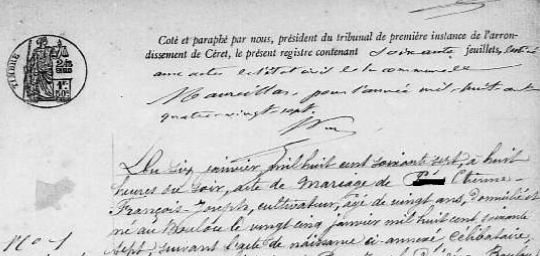 TIMBRE
Coté et paraphé par nous, président du tribunal de première instance de l'arron-
dissement de Céret, le présent registre contenant soixante feuillets, destiné
aux actes de l'état civil de la commune de
Maureillas, pour l'année mil huit cent
quatre vingt sept.
Du six janvier mil huit cent soixante sept, à huit
heures du soir, acte de mariage de Etienne
François Joseph, cultivateur, âgé de vingt ans, domicilié et
né au Boulou le vingt cinq janvier mil huit cent soixante
No 1
sept, suivant l'acte de naissance ci-annexé célibataire,
Boulou